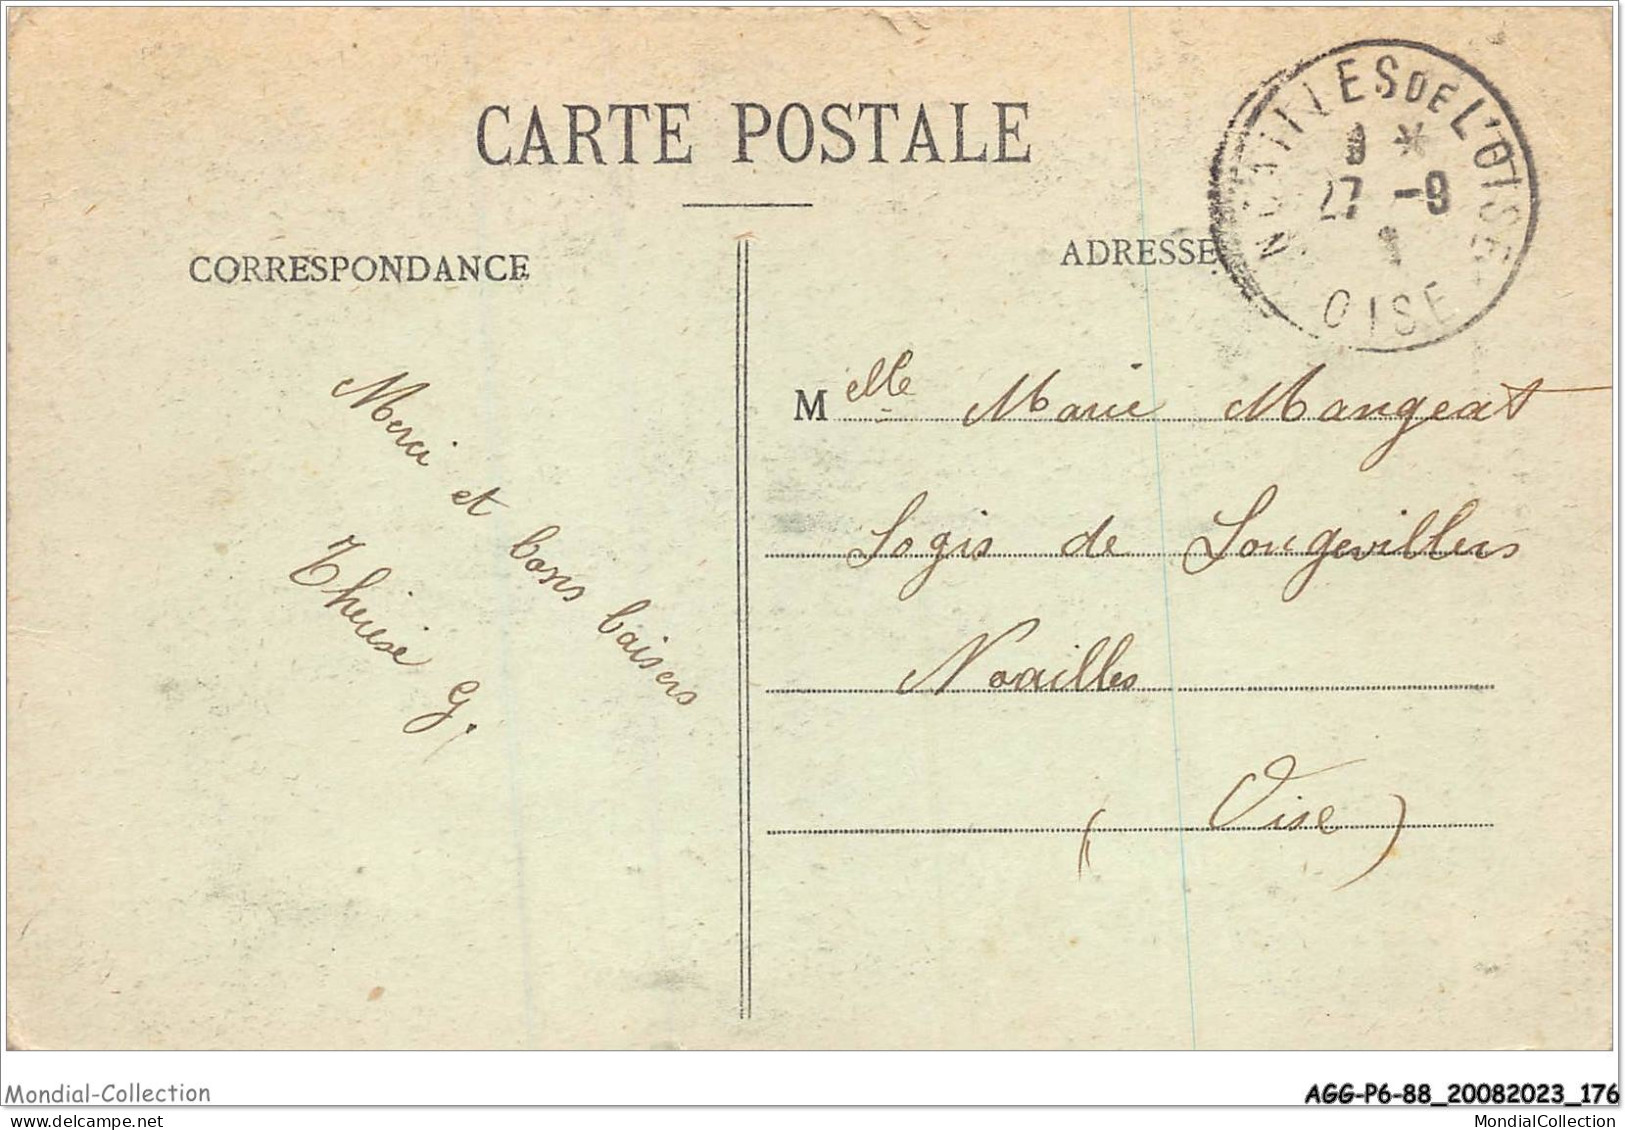 CARTE POSTALE
CORRESPONDANCE
ADRESSE
NOAILLES DE L'OISE
27 -9
OISE
Merci et bons baisers
Thérèse G.
Melle Marie Mangeat
Logis de Longevillers
Noailles
(Oise)
Mondial-Collection
AGG-P6-88_20082023_176
MondialCollection